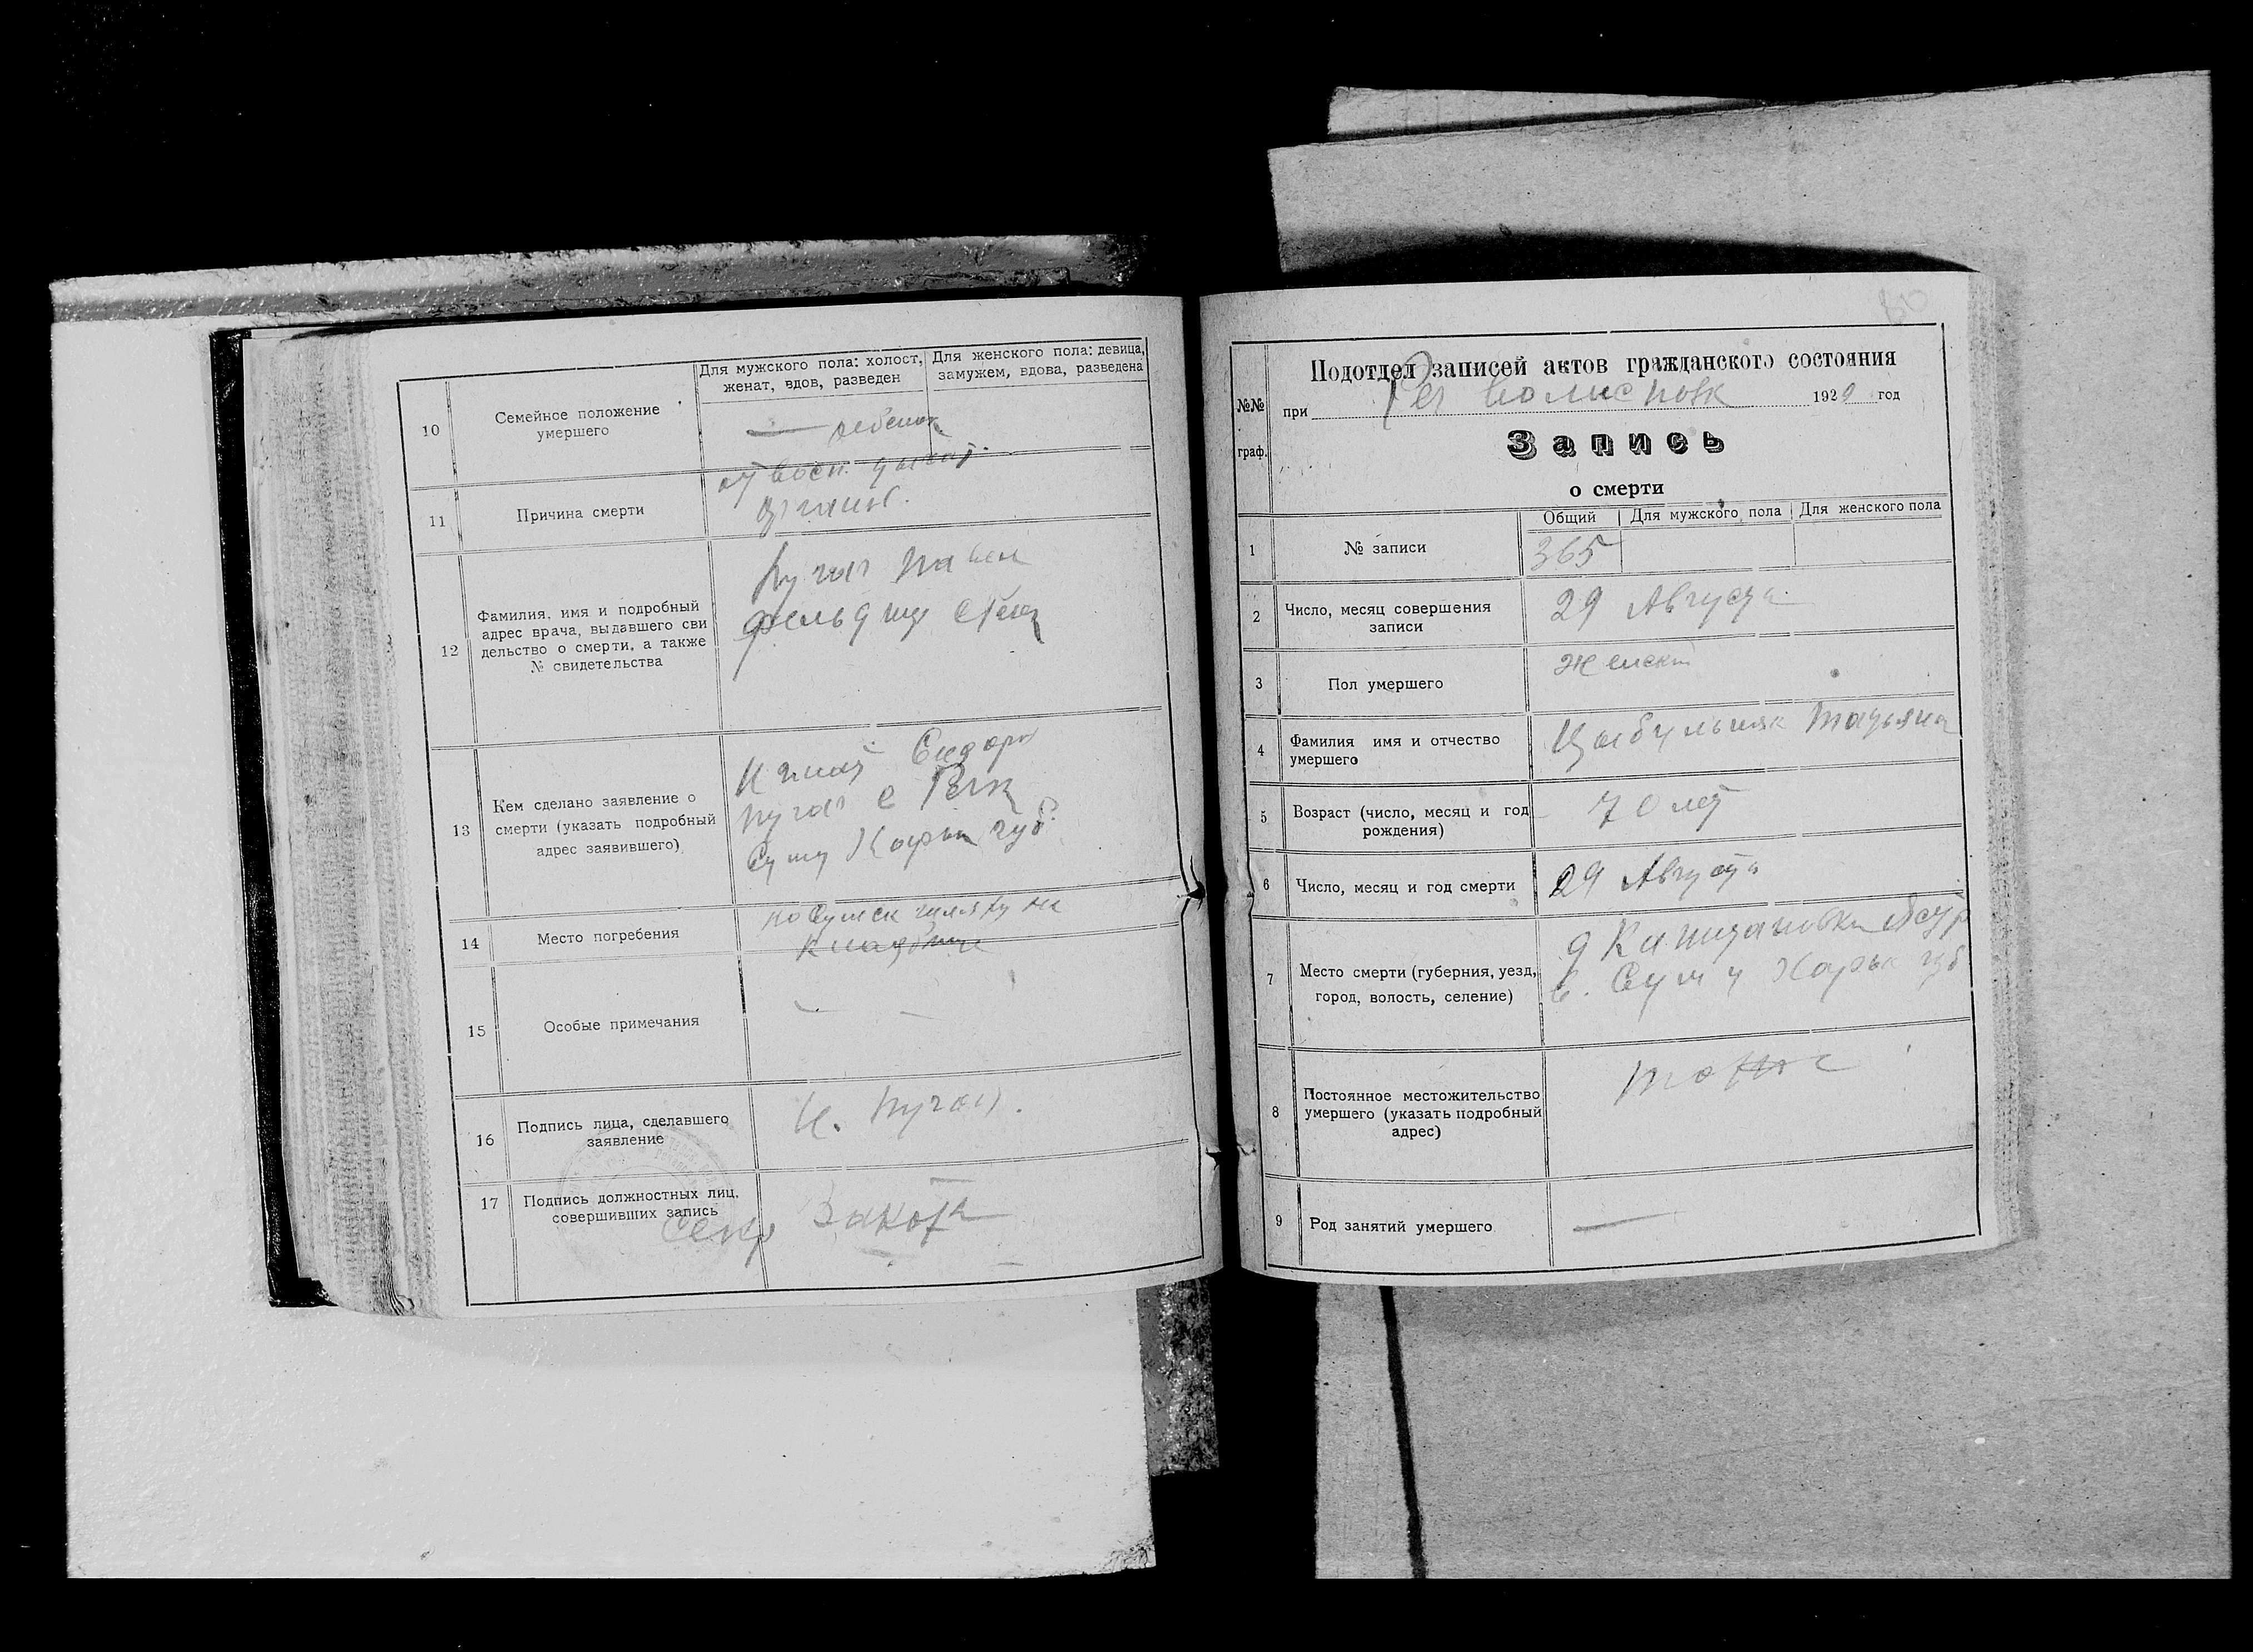 10
Семейное положение
умершего
Для мужского пола: холост,
женат, вдов, разведен
Для женского пола: девица,
замужем, вдова, разведена
— ребенок
11
Причина смерти
от восп. дыхат.
орган.
12
Фамилия, имя и подробный
адрес врача, выдавшего сви
дельство о смерти, а также
№ свидетельства
Пугач Павел
фельдш
13
Кем сделано заявление о
смерти (указать подробный
адрес заявившего)
Игнат Сидоров
Пугач с
Сум у Харьк губ
14
Место погребения
по Сумск шляху на
кладбище
15
Особые примечания
— —
16
Подпись лица, сделавшего
заявление
И. Пугач.
17
Подпись должностных лиц,
совершивших запись
Секр
№№
граф.
Подотдел записей актов гражданского состояния
при Рев волисполк 1920 год
Запись
о смерти
1
№ записи
Общий
Для мужского пола
Для женского пола
365
2
Число, месяц совершения
записи
29 Августа
3
Пол умершего
Женск
4
Фамилия имя и отчество
умершего
Цыбульняк Татьяна
5
Возраст (число, месяц и год
рождения)
70 лет
6
Число, месяц и год смерти
29 Августа
7
Место смерти (губерния, уезд,
город, волость, селение)
в. Сум у Харьк губ
8
Постоянное местожительство
умершего (указать подробный
адрес)
тоже
9
Род занятий умершего
—